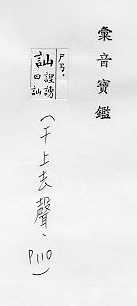 彙音寶鑑
ㄕㄢˋ
訕
謗誹
曰訕
(干上去聲、
P110)